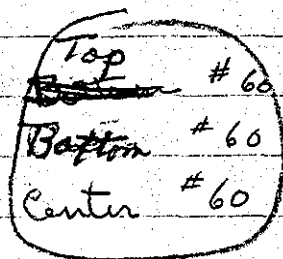 Top #60
Bottom #60
Center #60